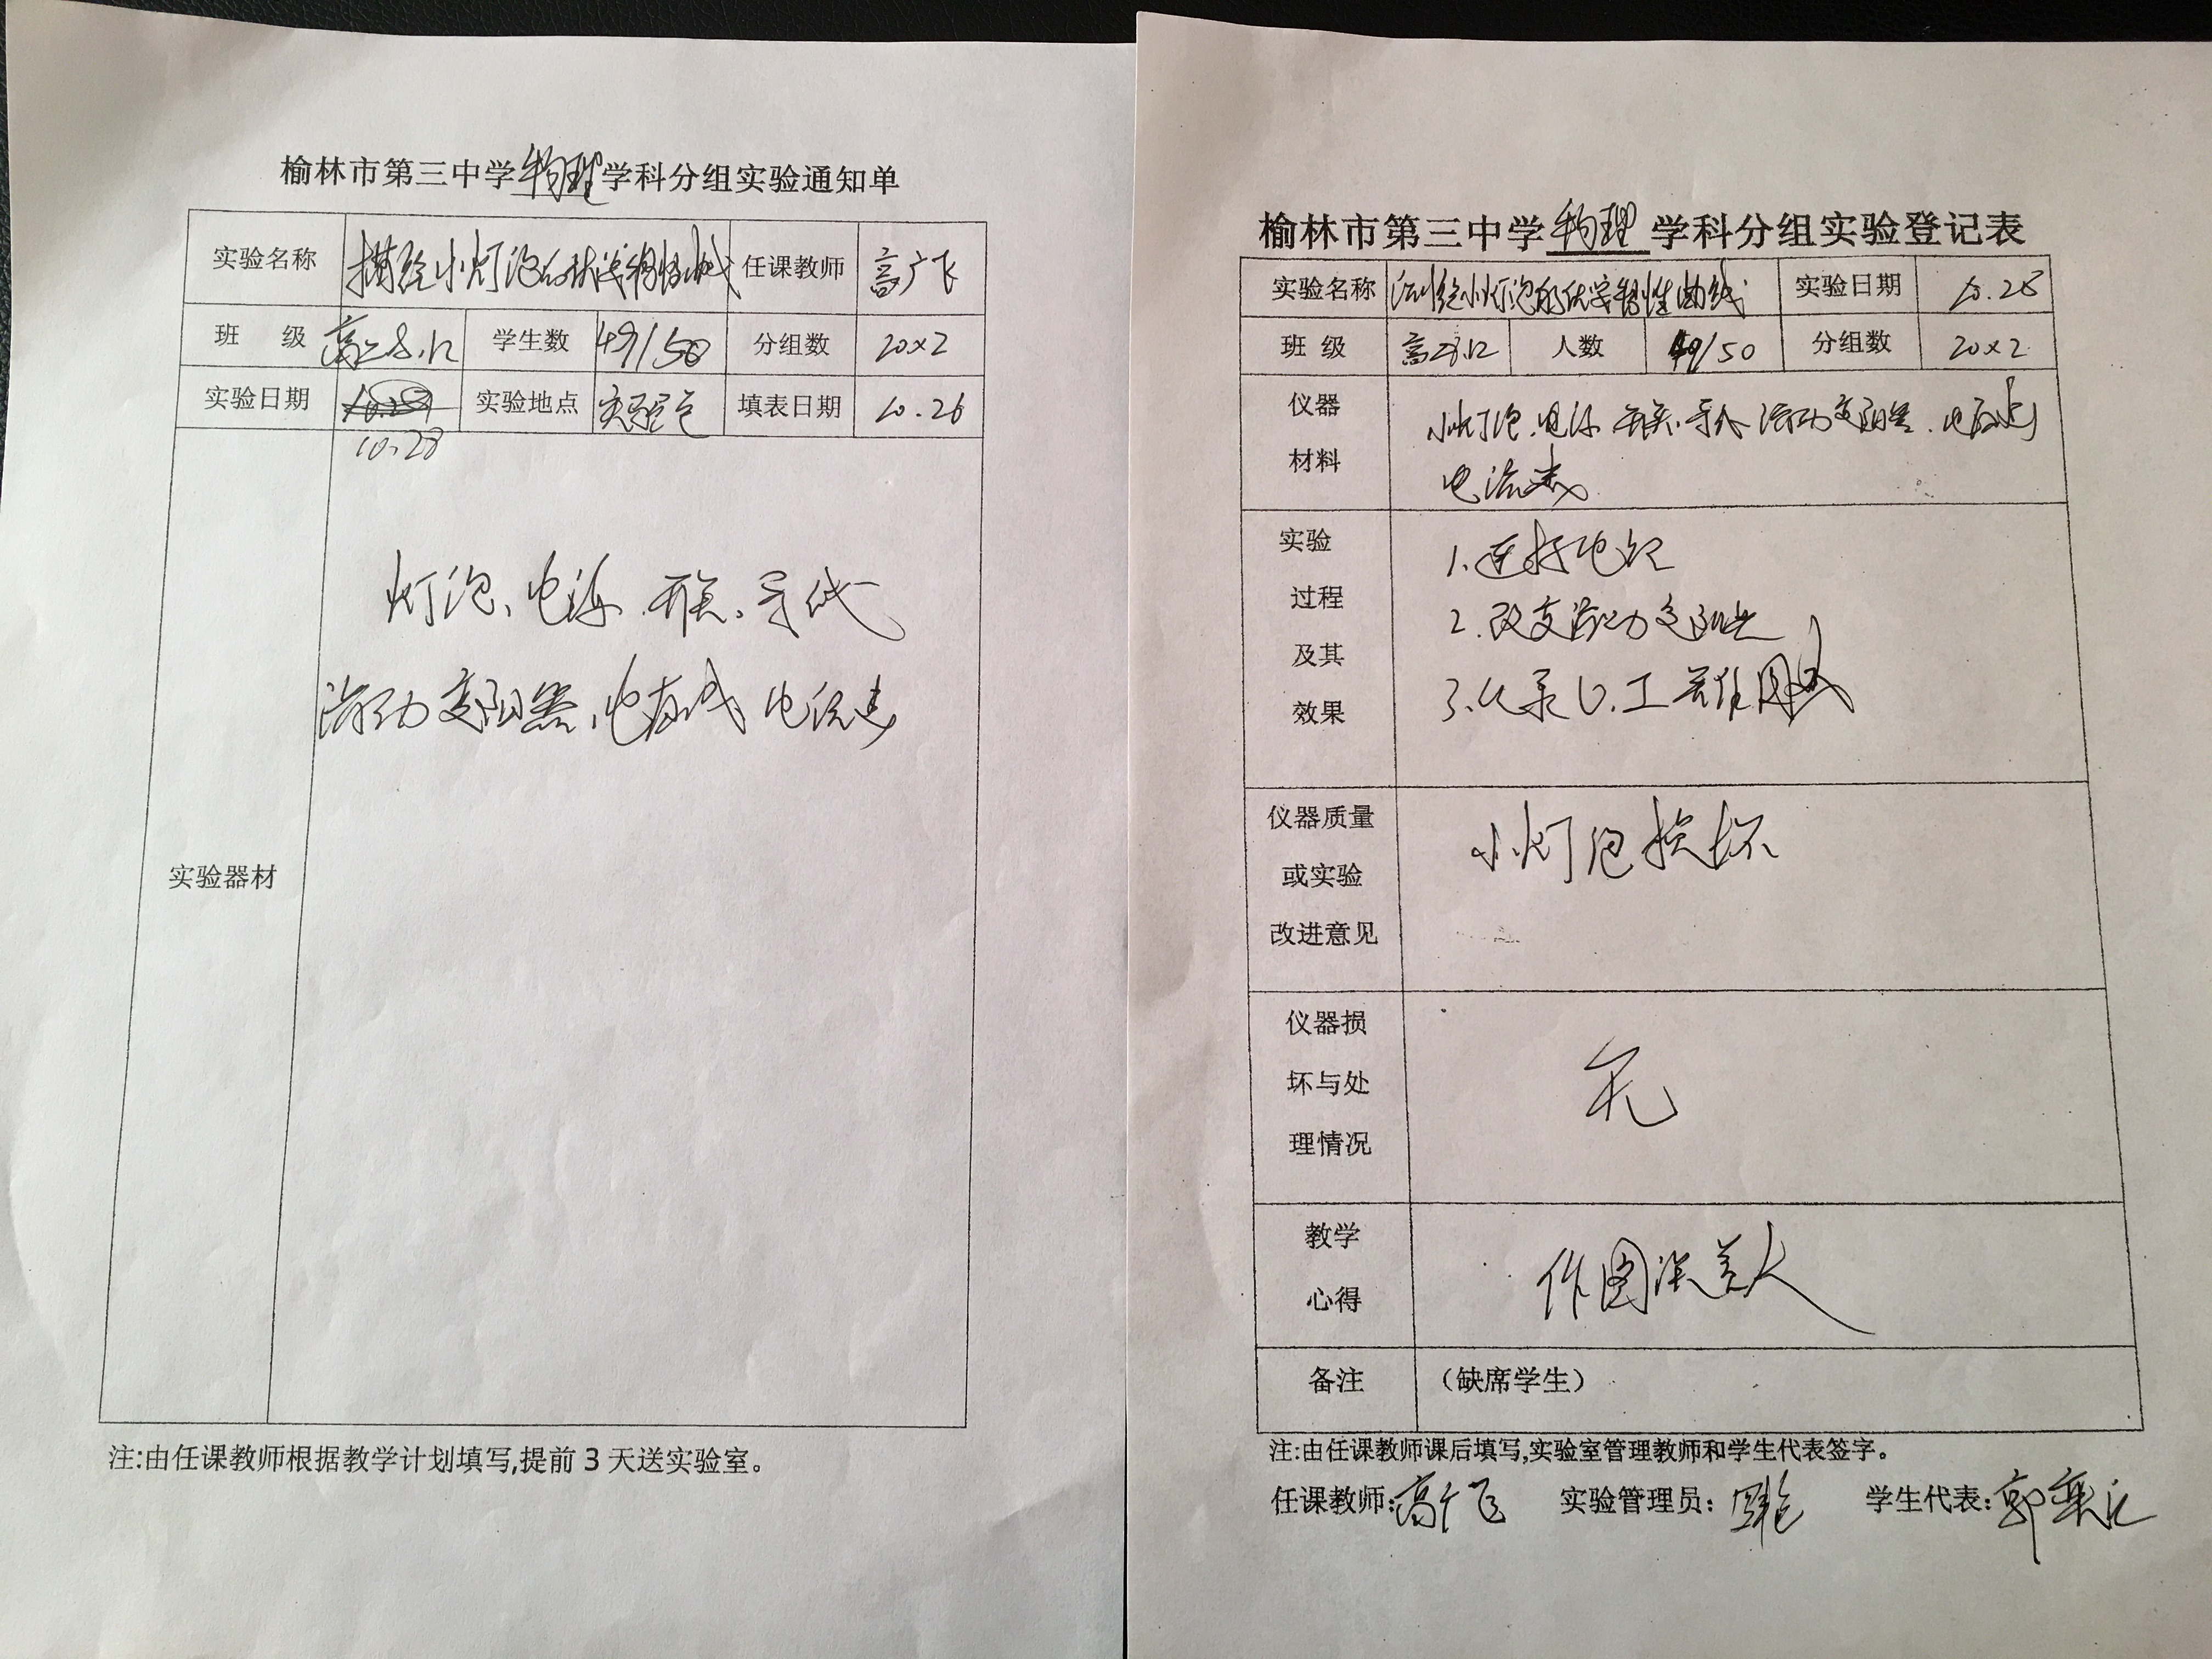 榆林市第三中学物理学科分组实验通知单
实验名称 描绘小灯泡的伏安特性曲线 任课教师 高广飞
班 级 高二8.12 学生数 49/50 分组数 20×2
实验日期 10.28 实验地点 实验室 填表日期 10.26
实验器材
灯泡、电源、开关、导线
滑动变阻器、电压表 电流表
注:由任课教师根据教学计划填写,提前3天送实验室。
榆林市第三中学物理学科分组实验登记表
实验名称 描绘小灯泡的伏安特性曲线 实验日期 10.28
班 级 高二8.12 人数 49/50 分组数 20×2
仪器材料
小灯泡、电源、开关、导线 滑动变阻器、电压表
电流表
实验过程及其效果
1.连接电路
2.改变滑动变阻器
3.记录U、I
仪器质量或实验改进意见
小灯泡损坏
仪器损坏与处理情况
无
教学心得
作图误差大
备注 (缺席学生)
注:由任课教师课后填写,实验室管理教师和学生代表签字。
任课教师:高广飞 实验管理员: 学生代表:郭